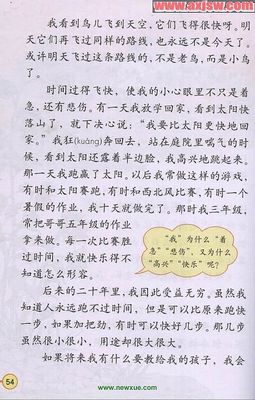 www.axjsw.com
我看到鸟儿飞到天空,它们飞得很快呀。明
天它们再飞过同样的路线,也永远不是今天了。
或许明天飞过这条路线的,不是老鸟,而是小鸟
了。
时间过得飞快,使我的小心眼里不只是着
急,还有悲伤。有一天我放学回家,看到太阳快
落山了,就下决心说:“我要比太阳更快地回
家。”我狂(kuáng)奔回去,站在庭院里喘气的时
候,看到太阳还露着半边脸,我高兴地跳起来。
那一天我跑赢了太阳。以后我常做这样的游戏,
有时和太阳赛跑,有时和西北风比赛,有时一个
暑假的作业,我十天就做完了。那时我三年级,
常把哥哥五年级的作业
拿来做。每一次比赛胜
过时间,我就快乐得不
知道怎么形容。
“我”为什么“着
急”“悲伤”,又为什么
“高兴”“快乐”呢?
后来的二十年里,我因此受益无穷。虽然我
知道人永远跑不过时间,但是可以比原来跑快
一步,如果加把劲,有时可以快好几步。那几步
虽然很小很小,用途却很大很大。
如果将来我有什么要教给我的孩子,我会
54
www.newxue.com